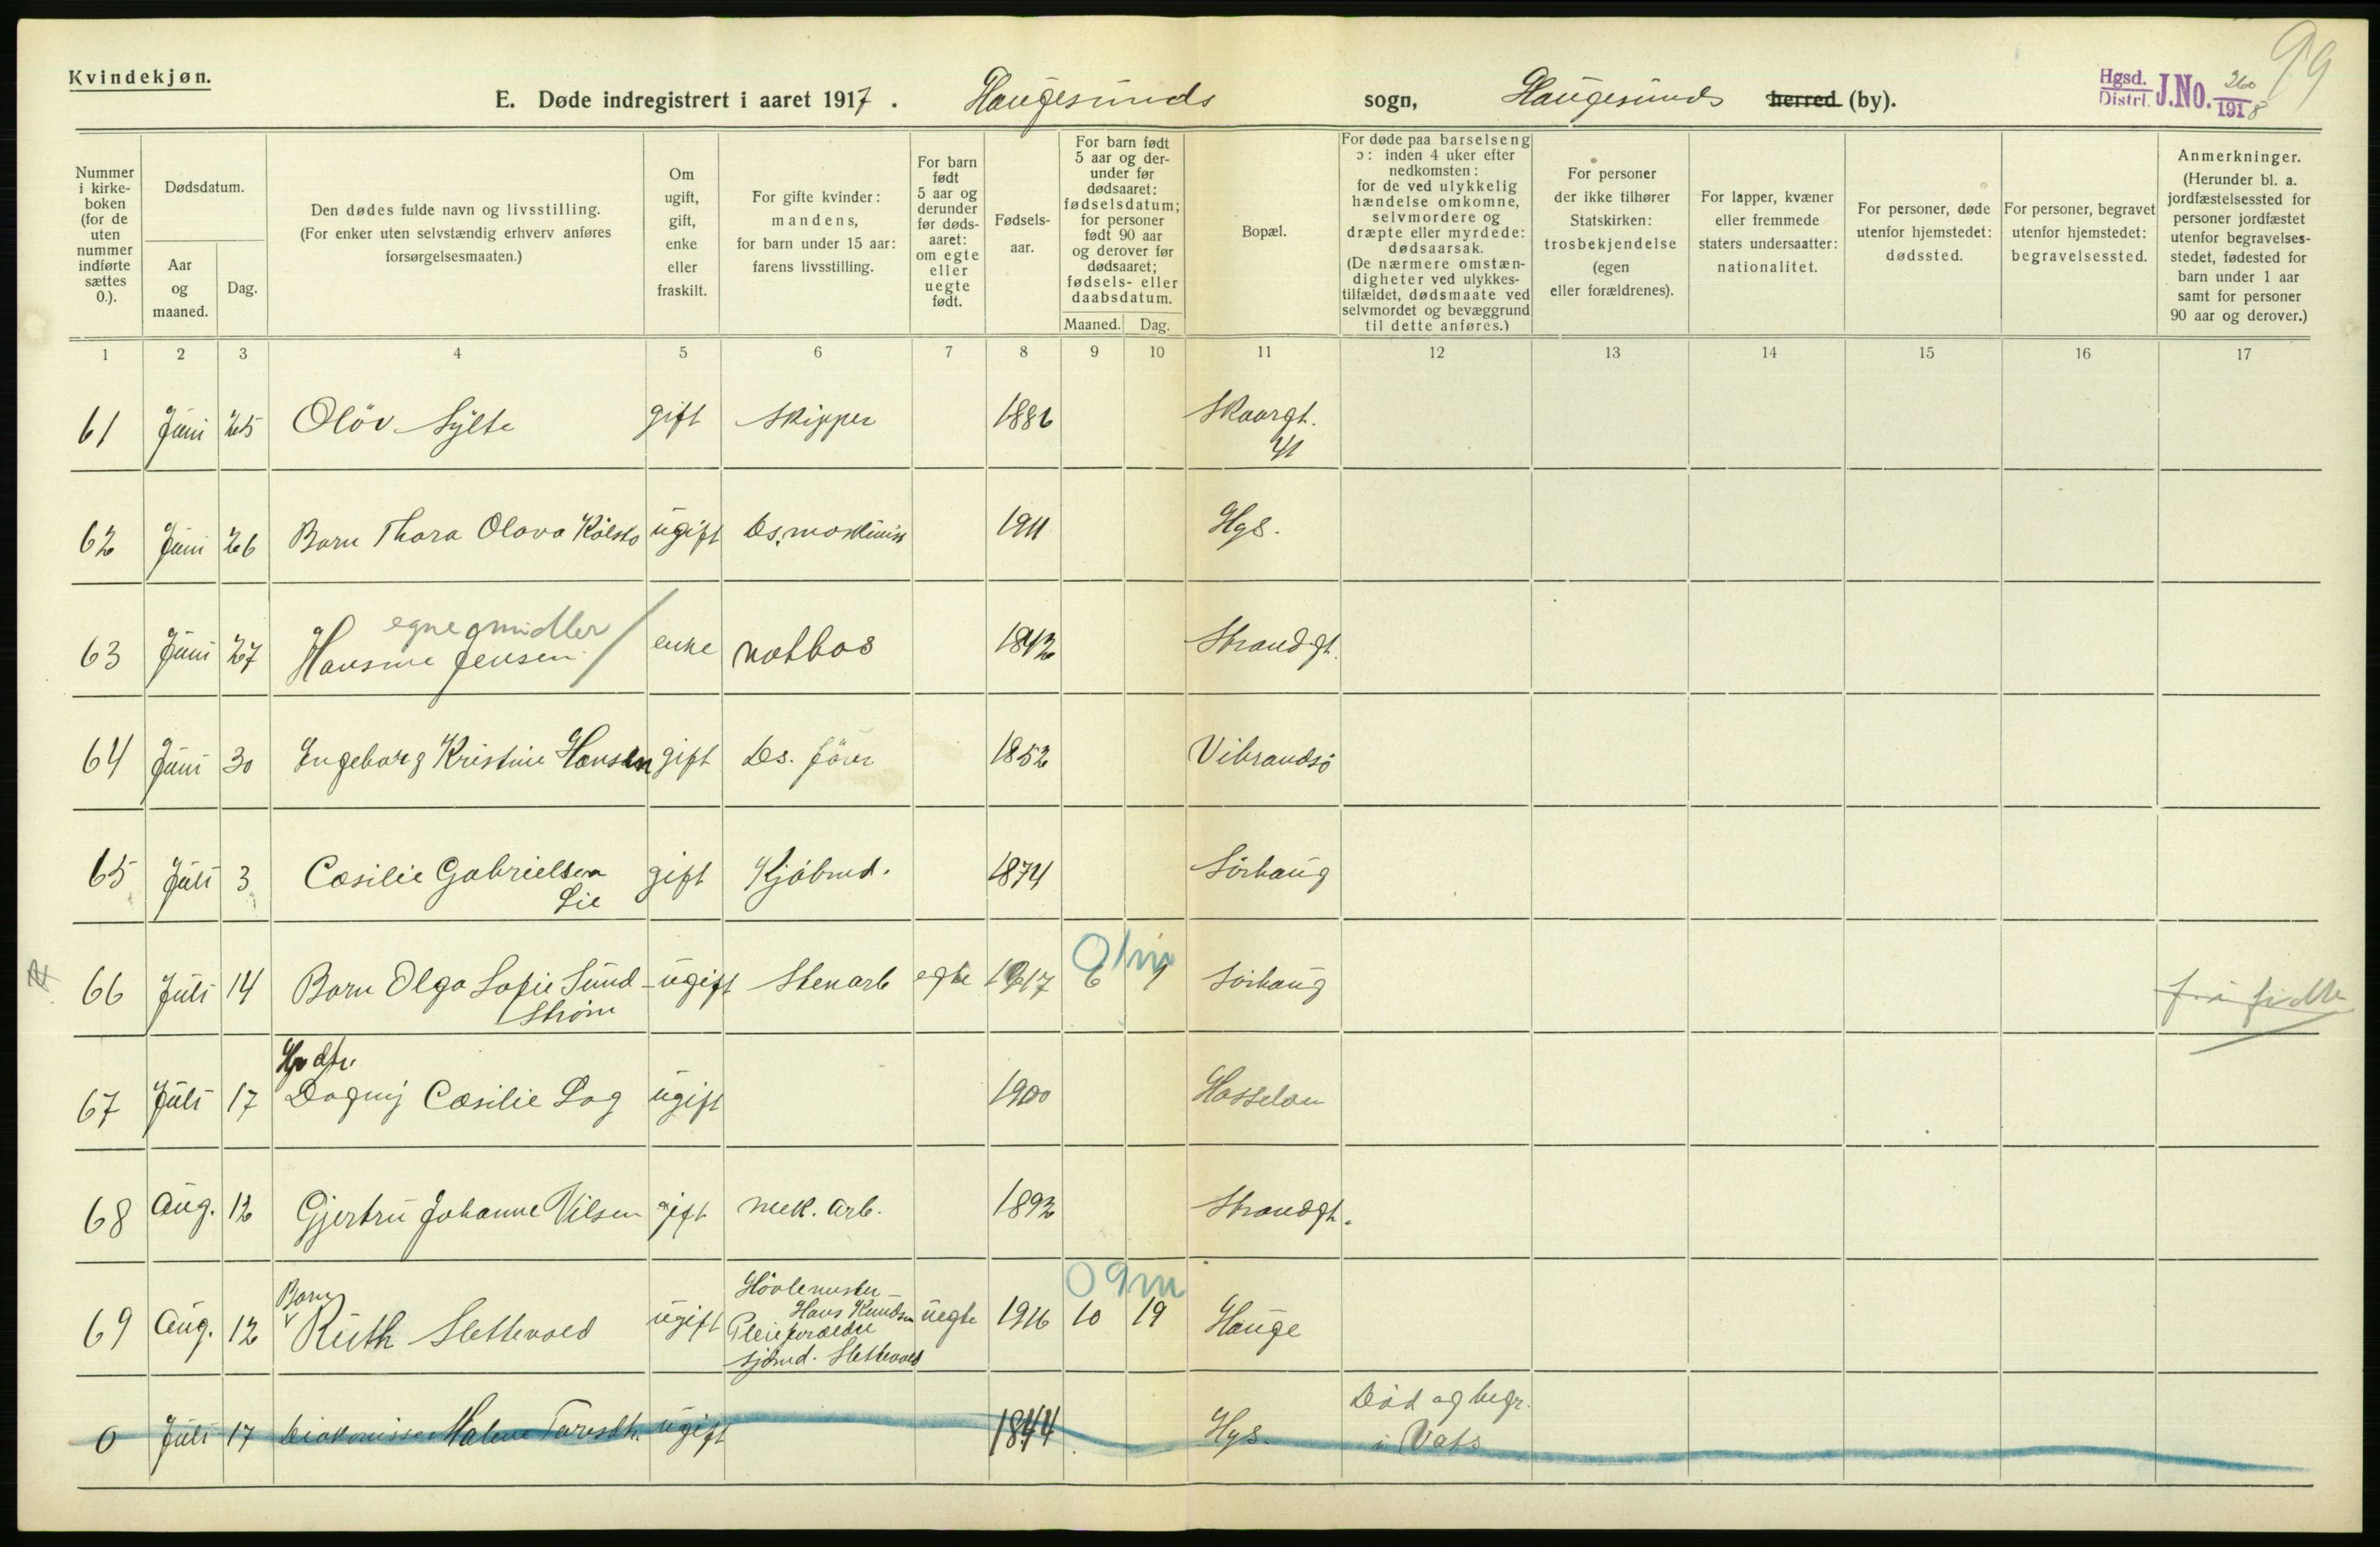 Kvindekjøn.
E. Døde indregistrert i aaret 1917. Haugesunds sogn, Haugesunds herred (by).
Hgsd. Distr. J.No. 260 1918
99
Nummer i kirkeboken (for de uten nummer indførte sættes 0.).
Dødsdatum.
Aar og maaned.
Dag.
Den dødes fulde navn og livsstilling.
(For enker uten selvstændig erhverv anføres
forsørgelsesmaaten.)
Om ugift, gift, enke eller fraskilt.
For gifte kvinder:
mandens,
for barn under 15 aar:
farens livsstilling.
For barn født 5 aar og derunder før dødsaaret: om egte eller uegte født.
Fødselsaar.
For barn født 5 aar og derunder før dødsaaret: fødselsdatum; for personer født 90 aar og derover før dødsaaret; fødsels- eller daabsdatum.
Maaned. Dag.
Bopæl.
For døde paa barselseng ɔ: inden 4 uker efter nedkomsten: for de ved ulykkelig hændelse omkomne, selvmordere og dræpte eller myrdede: dødsaarsak. (De nærmere omstændigheter ved ulykkestilfældet, dødsmaate ved selvmordet og bevæggrund til dette anføres.)
For personer der ikke tilhører Statskirken: trosbekjendelse (egen eller forældrenes).
For lapper, kvæner eller fremmede staters undersaatter: nationalitet.
For personer, døde utenfor hjemstedet: dødssted.
For personer, begravet utenfor hjemstedet: begravelsessted.
Anmerkninger. (Herunder bl. a. jordfæstelsessted for personer jordfæstet utenfor begravelsesstedet, fødested for barn under 1 aar samt for personer 90 aar og derover.)
1 2 3 4 5 6 7 8 9 10 11 12 13 14 15 16 17
61 Juni 25 Olöv Sylte gift Skipper 1886 Skaargt.
41
62 Juni 26 Barn Thora Olava Kolstø ugift Ds. maskinist 1911 Hgs.
egne midler
63 Juni 27 Hansine Jensen enke notbas 1842 Strandgt.
64 Juni 30 Engeborg Kristine Hansen gift Ds. förer 1852 Vibrandsö
65 Juli 3 Cæsilie Gabrielsen gift Kjöbmd. 1874 Sörhaug
Lie
0 1 m
66 Juli 14 Barn Olga Sofie Sund- ugift Stenarb egte 1917 6 9 Sörhaug
Ström
Hosdtr.
67 Juli 17 Dagny Cæsilie Log ugift 1900 Hasseløen
68 Aug. 12 Gjertru Johanne Nilsen gift mek. arb. 1892 Strandgt.
0 9 m
Barn Hövlemester
69 Aug. 12 Ruth Slettevold ugift Hans Knudsen uegte 1916 10 19 Hauge
Pleieforældre
sjömd. Slettevold
0 Juli 17 Diakonisse Malene ugift 1844 Hgs. Död og begr.
i Vats